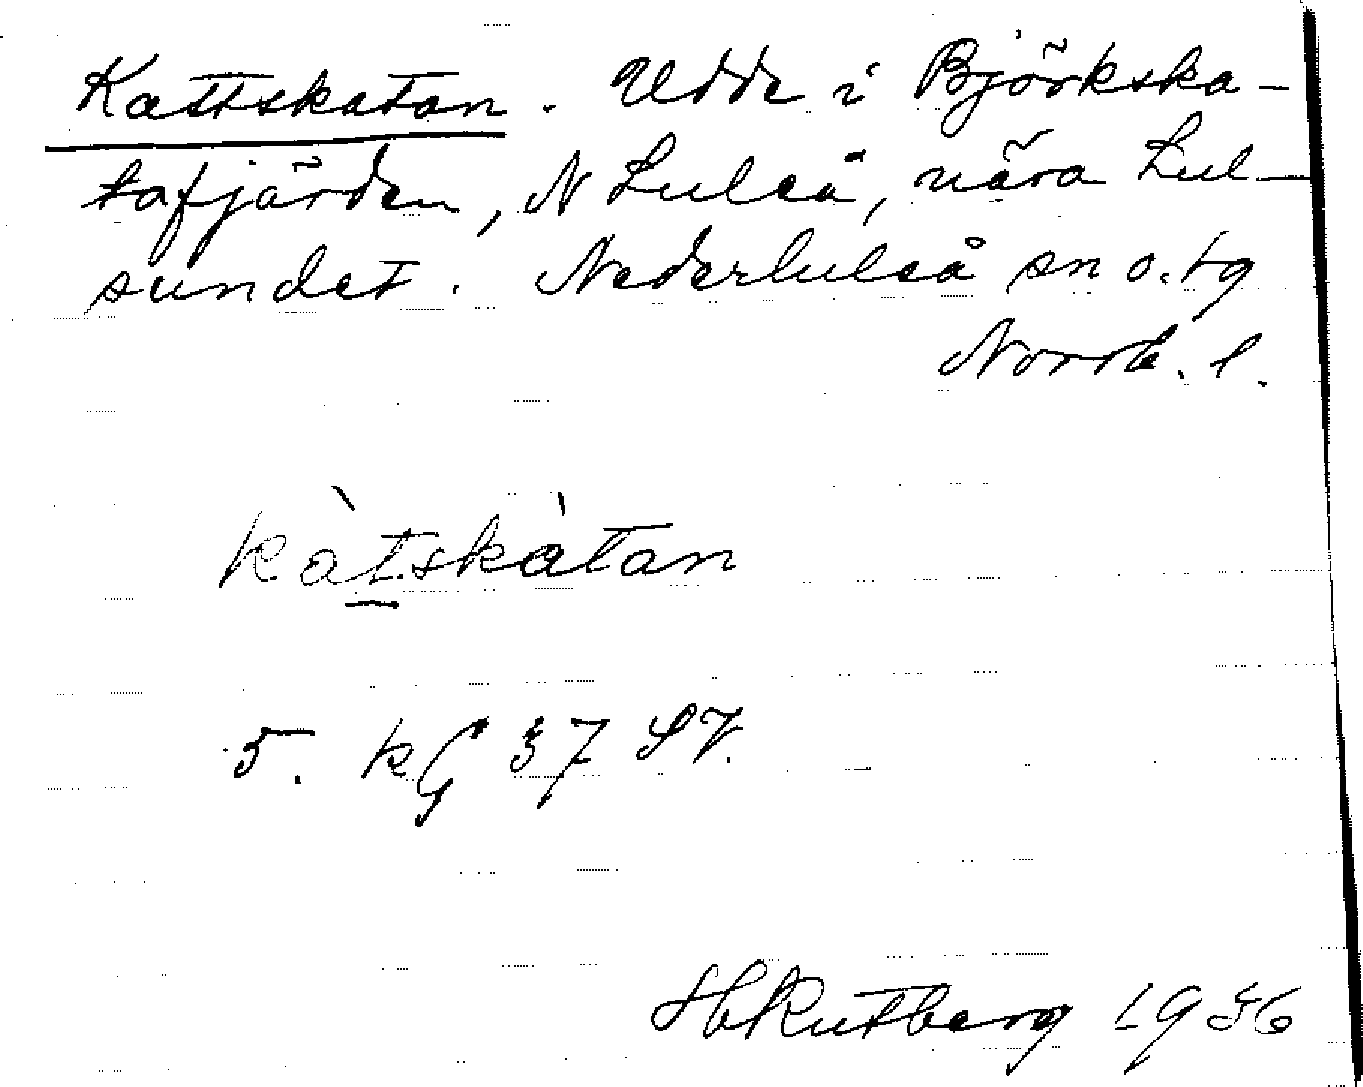 Kattskatan. Udde i Björkska-
tafjärden, N Luleå, nära Lul-
sundet. Nederluleå sn o. tg
Norrb. l.
kàtskàtan
5. kG 37 SV.
HRutberg 1936